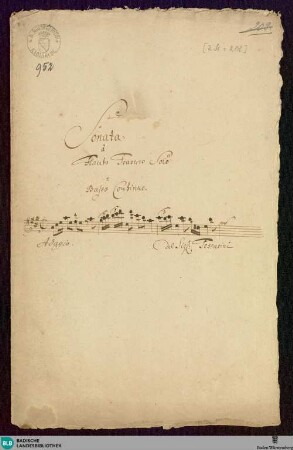 952
Sonata
à
Flauto Traverso Solo
e
Basso Continuo
Adagio.
Del Sigr.
BLB
BADISCHE
LANDESBIBLIOTHEK
Baden-Württemberg